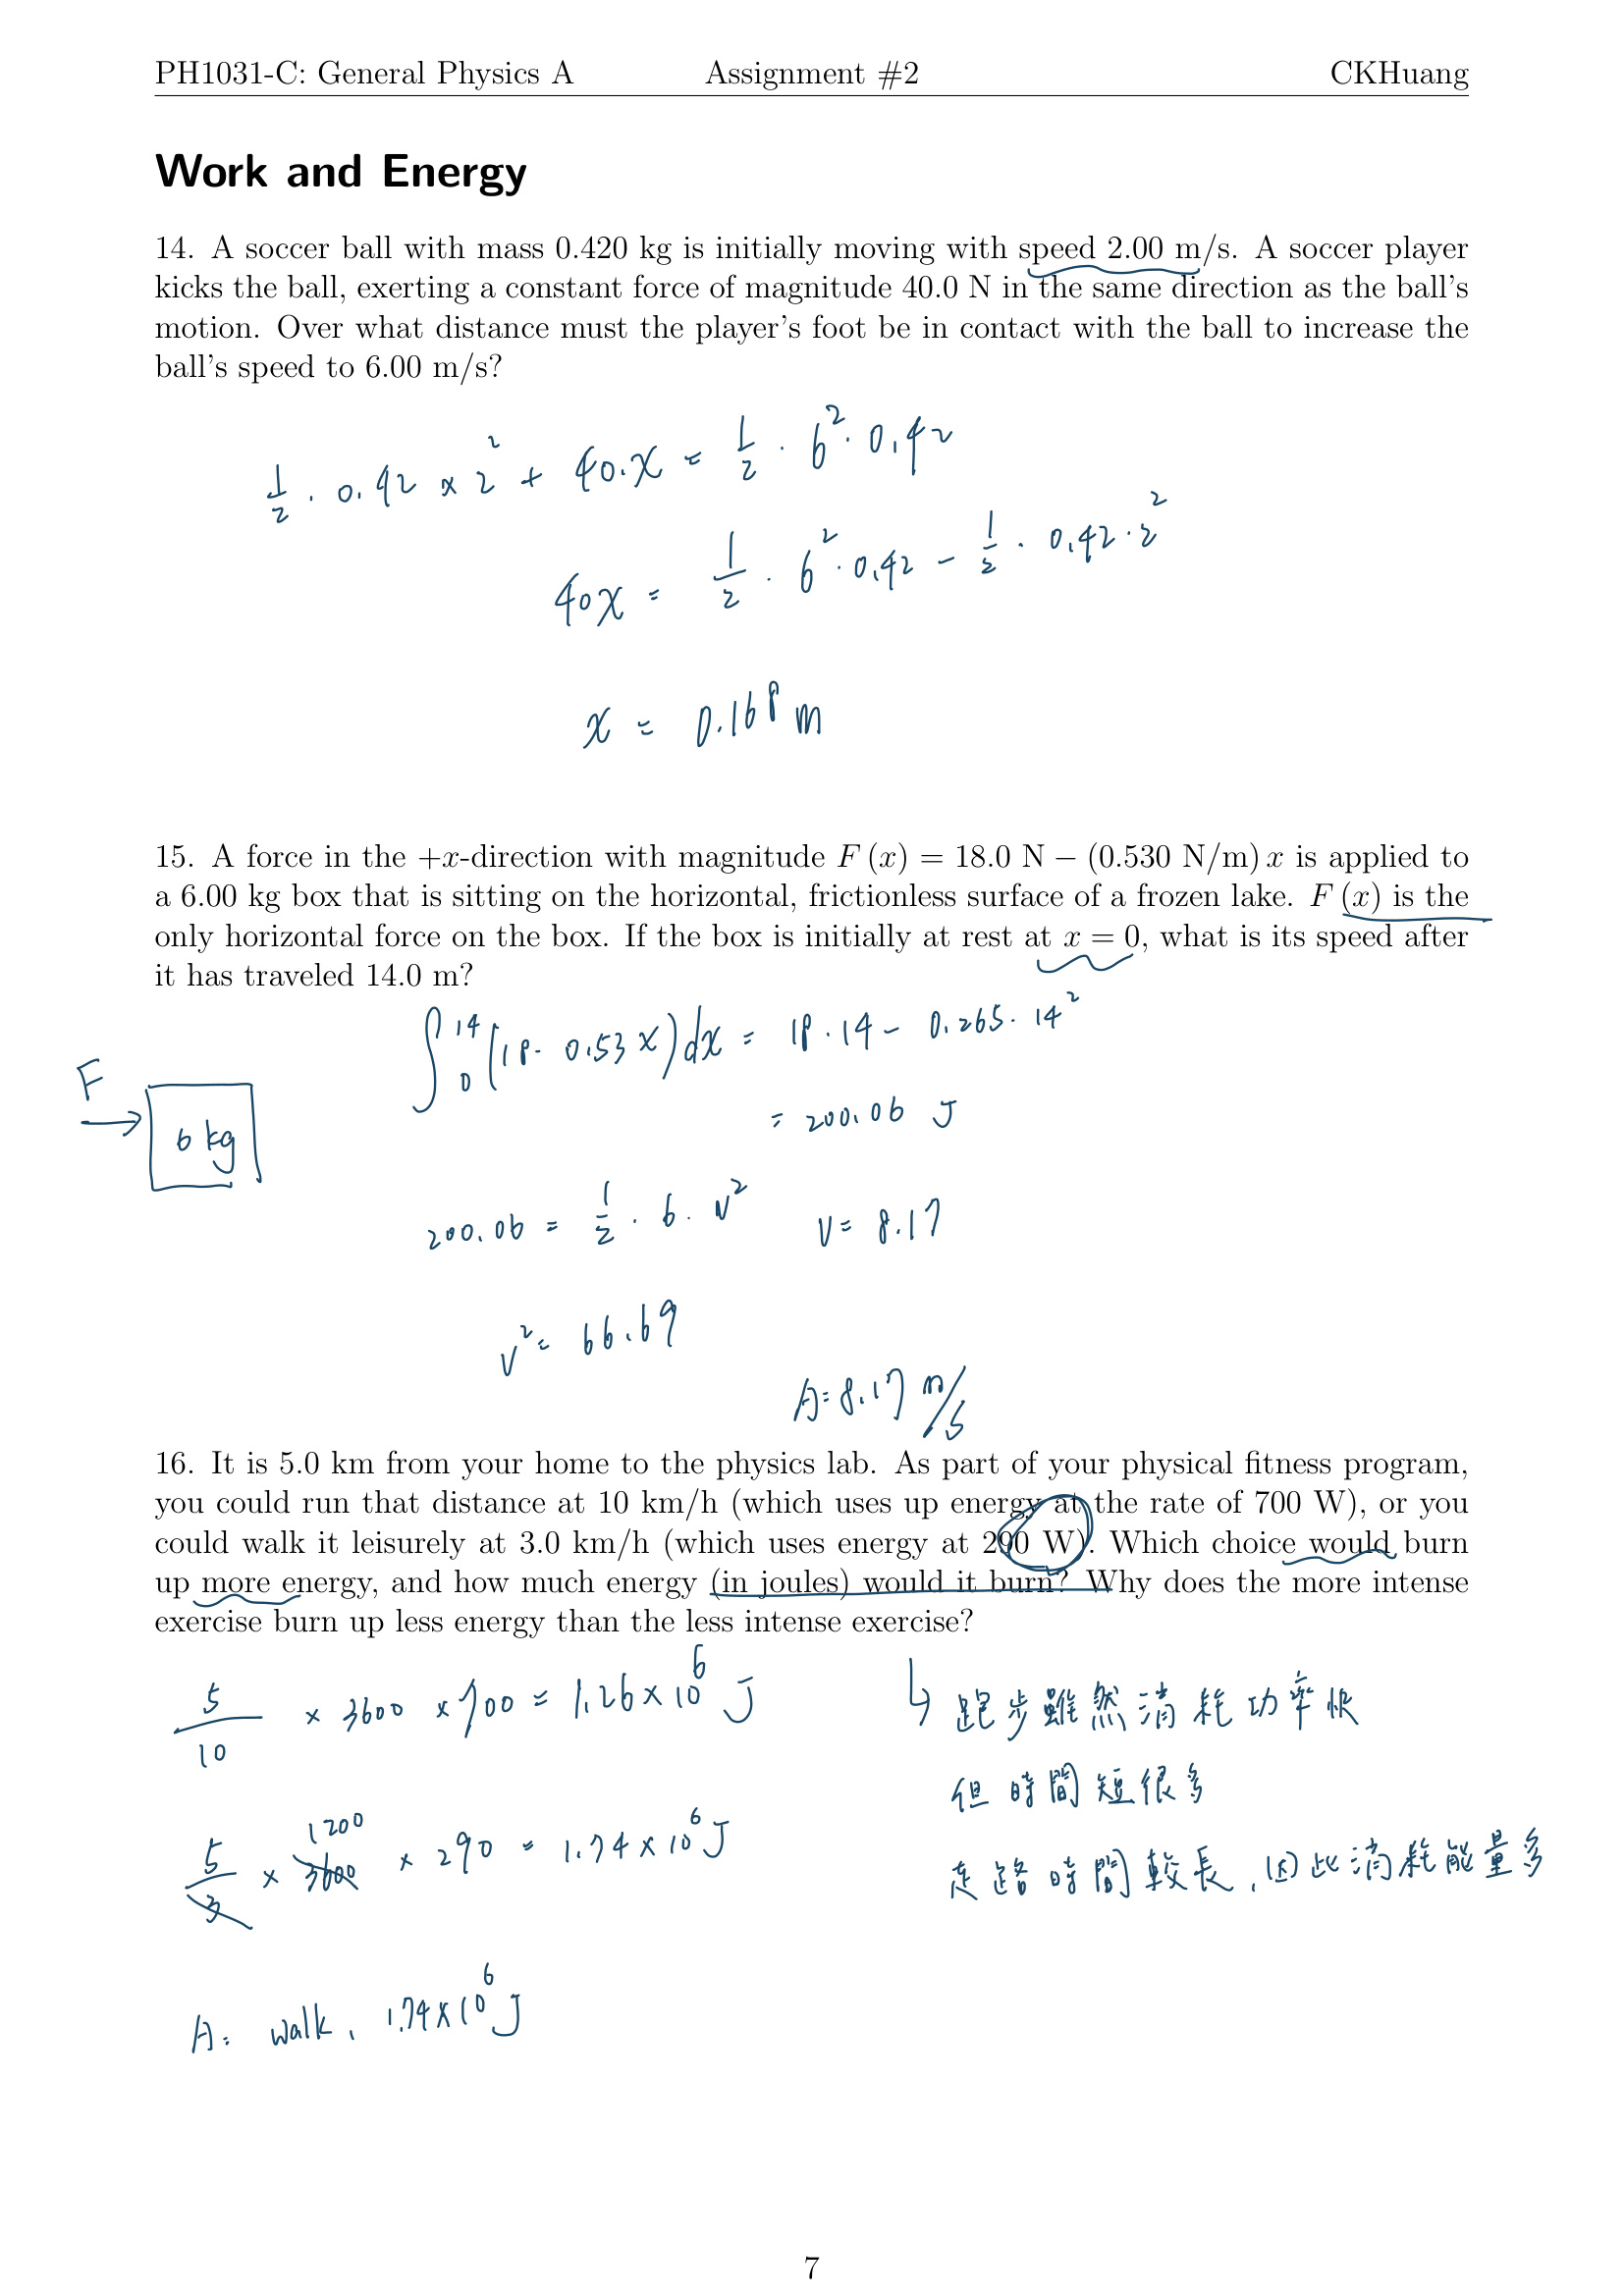 PH1031-C: General Physics A Assignment #2 CKHuang
Work and Energy
14. A soccer ball with mass 0.420 kg is initially moving with speed 2.00 m/s. A soccer player
kicks the ball, exerting a constant force of magnitude 40.0 N in the same direction as the ball's
motion. Over what distance must the player's foot be in contact with the ball to increase the
ball's speed to 6.00 m/s?
1/2 · 0.42 × 2² + 40·x = 1/2 · 6² · 0.42
40x = 1/2 · 6² · 0.42 − 1/2 · 0.42 · 2²
x = 0.168 m
15. A force in the +x-direction with magnitude F (x) = 18.0 N − (0.530 N/m) x is applied to
a 6.00 kg box that is sitting on the horizontal, frictionless surface of a frozen lake. F (x) is the
only horizontal force on the box. If the box is initially at rest at x = 0, what is its speed after
it has traveled 14.0 m?
∫₀¹⁴ (18 - 0.53x)dx = 18·14 − 0.265·14²
F
6 kg
= 200.06 J
200.06 = 1/2 · 6 · v² v = 8.17
v² = 66.69
A = 8.17 m/s
16. It is 5.0 km from your home to the physics lab. As part of your physical fitness program,
you could run that distance at 10 km/h (which uses up energy at the rate of 700 W), or you
could walk it leisurely at 3.0 km/h (which uses energy at 290 W). Which choice would burn
up more energy, and how much energy (in joules) would it burn? Why does the more intense
exercise burn up less energy than the less intense exercise?
5/10 × 3600 × 700 = 1.26 × 10⁶ J
↳ 跑步雖然消耗功率快
但時間短很多
1200
5/3 × 3600 × 290 = 1.74 × 10⁶ J
走路時間較長,因此消耗能量多
A: walk, 1.74×10⁶ J
7